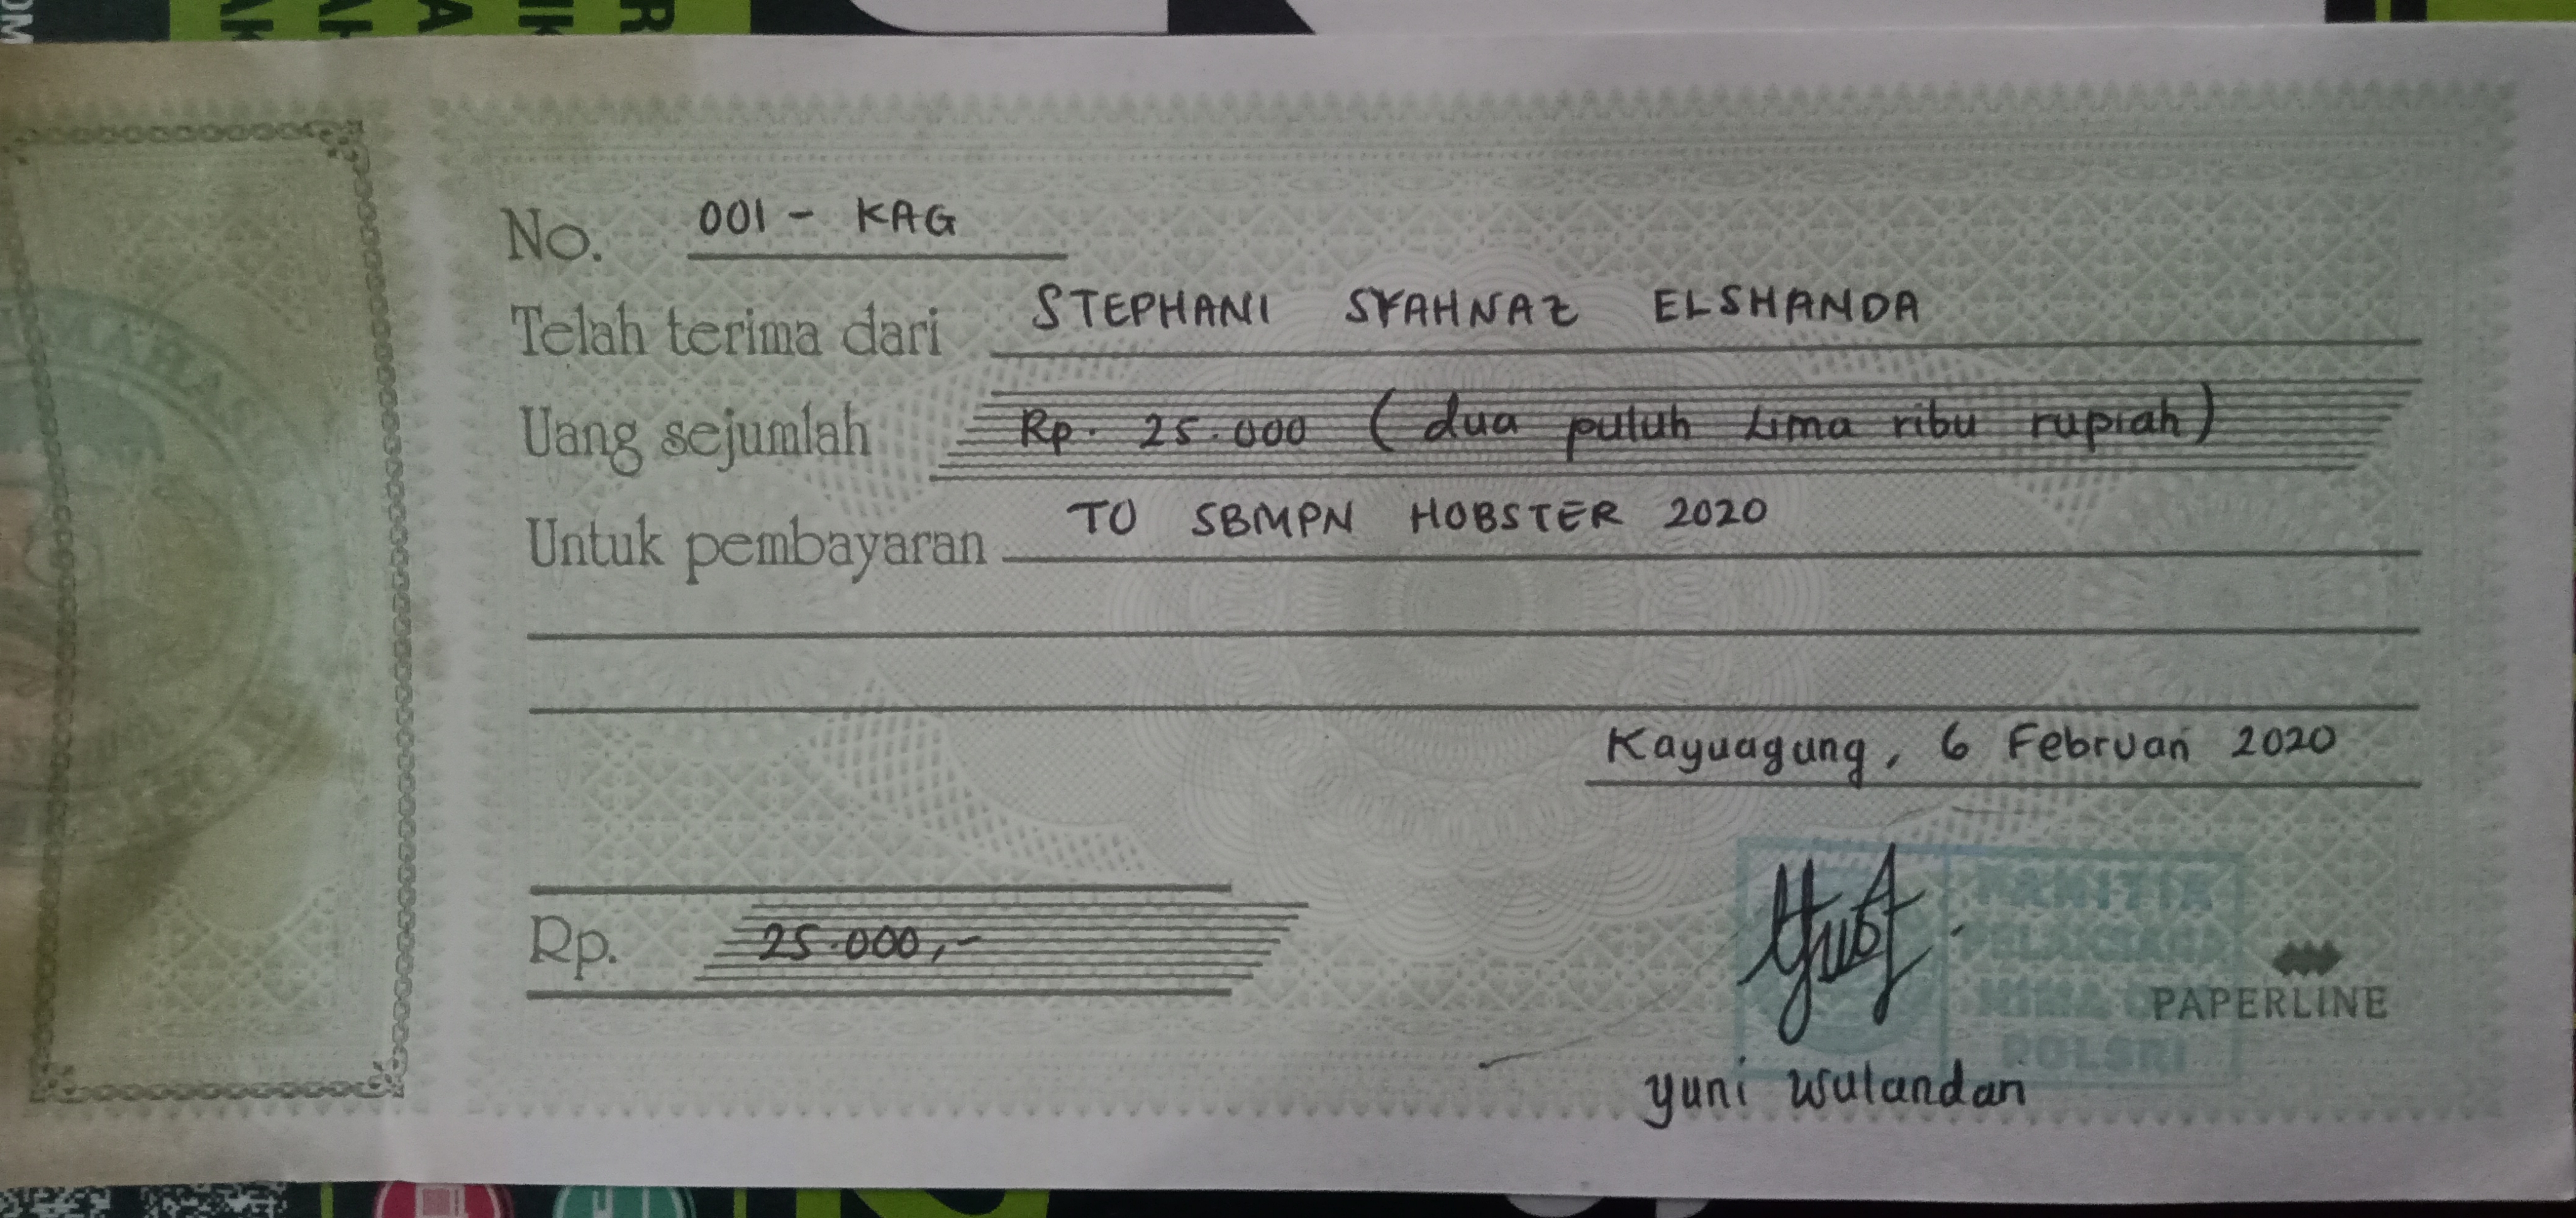 No. 001 - KAG
Telah terima dari STEPHANI SYAHNAZ ELSHANDA
Uang sejumlah Rp. 25.000 (dua puluh Lima ribu rupiah)
Untuk pembayaran TO SBMPN HOBSTER 2020
Kayuagung, 6 Februari 2020
Rp. 25.000,-
PANITIA
POLSRI
PAPERLINE
yuni wulandari